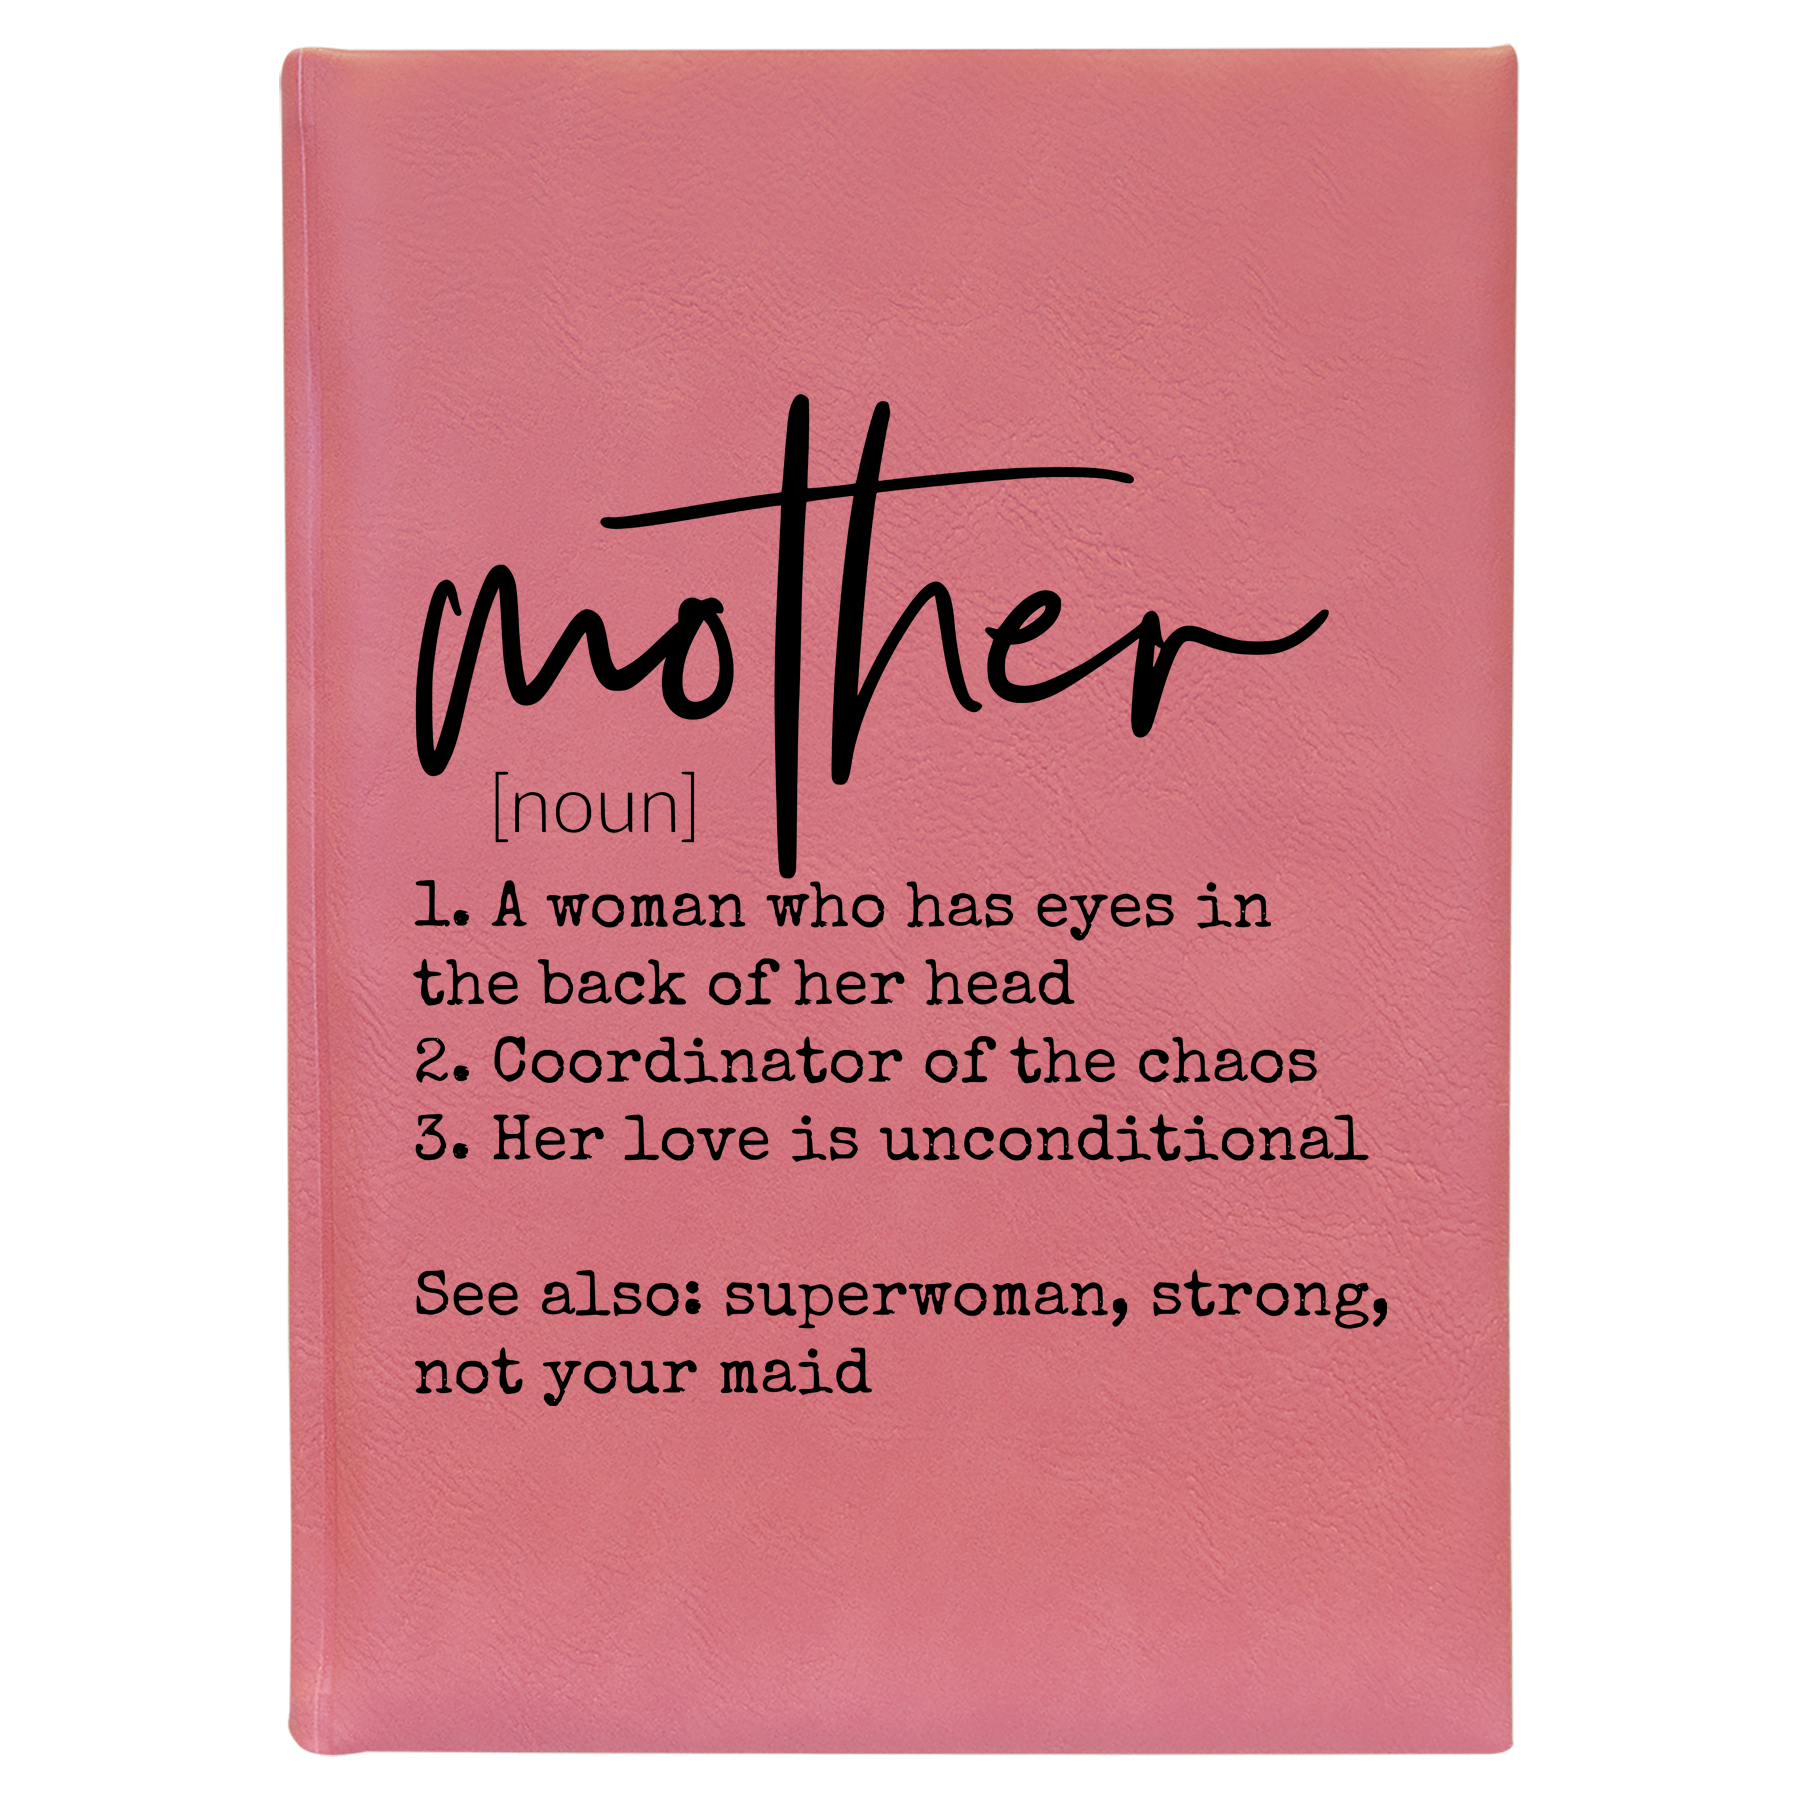 mother
[noun]
1. A woman who has eyes in
the back of her head
2. Coordinator of the chaos
3. Her love is unconditional
See also: superwoman, strong,
not your maid